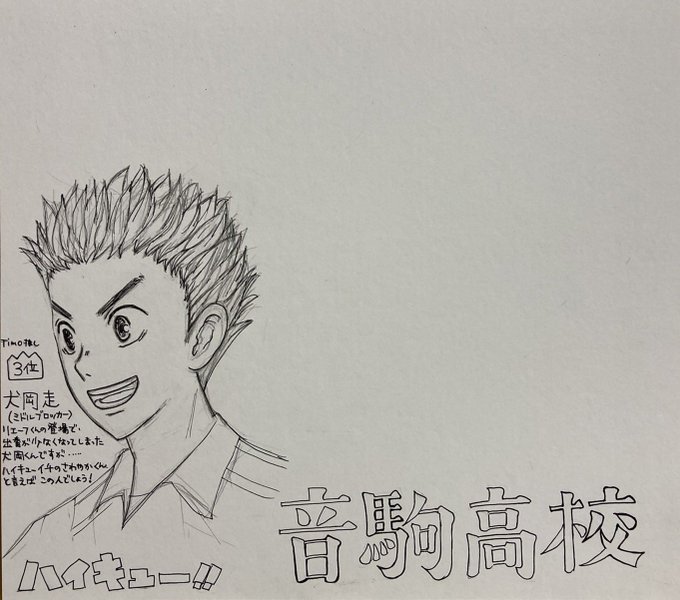 Timo推し
3位
犬岡走
(ミドルブロッカー)
リエーフくんの登場で、
出番が少なくなってしまった
犬岡くんですが.....
ハイキューイチのさわやかくん
と言えば この人でしょう!
ハイキュー!!
音駒高校